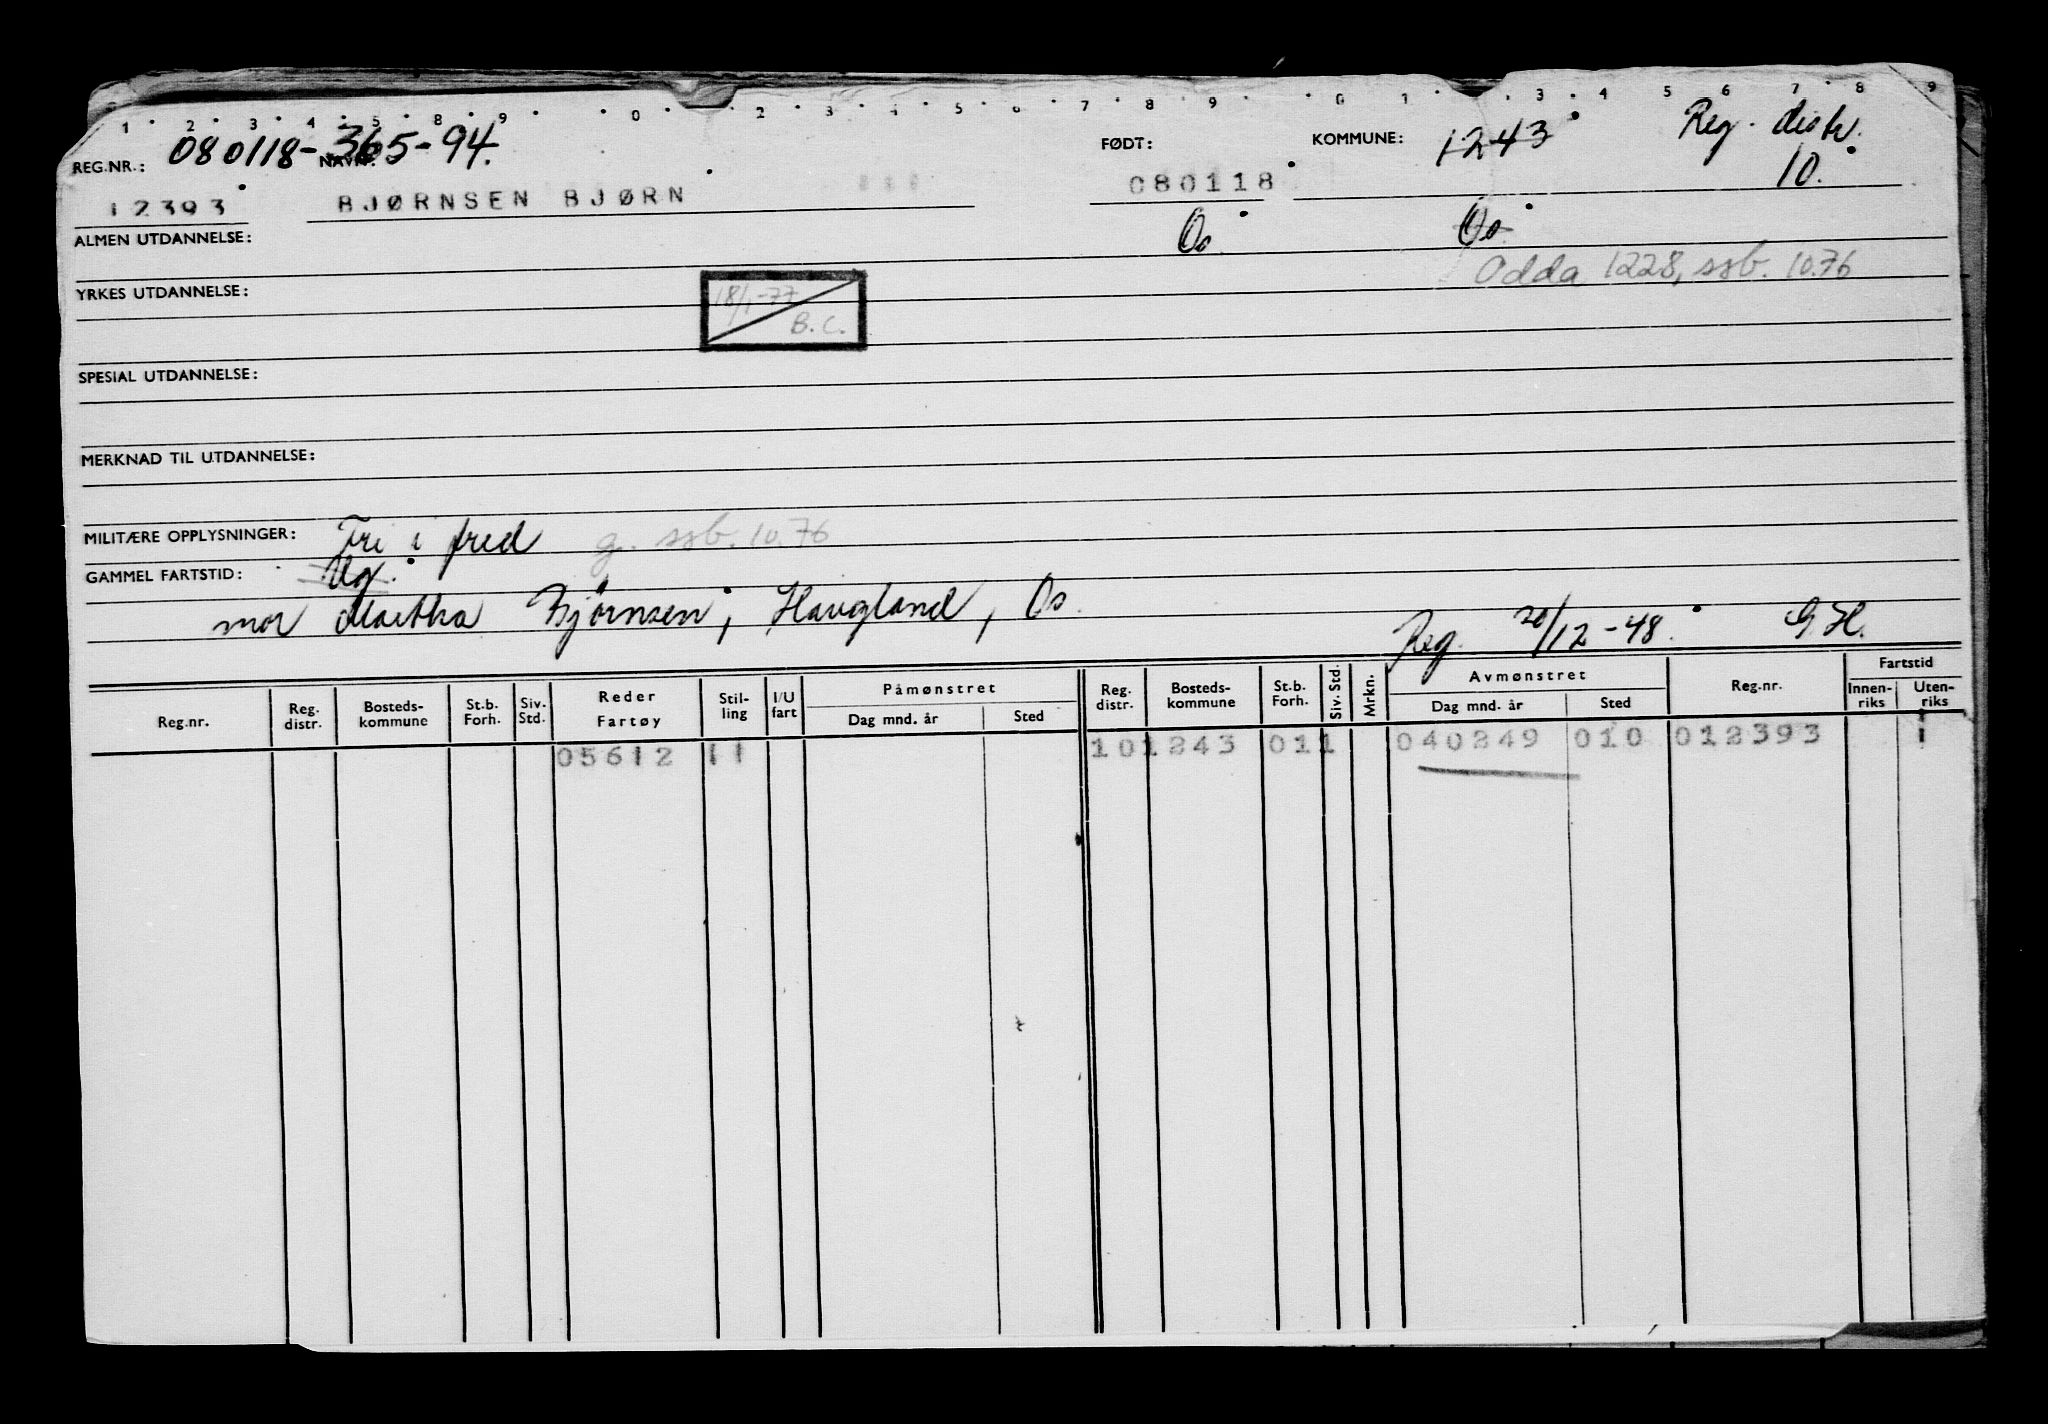 1 2 3 4 5 8 9 0 2 3 4 5 6 7 8 9 0 1 3 4 5 6 7 8 9
REG.NR.: 080118-365-94. NAVN: FØDT: KOMMUNE: 1243 Reg. distr.
12393 BJØRNSEN BJØRN 080118 10.
ALMEN UTDANNELSE: Os Os
Odda 1228, ssb. 10.76
YRKES UTDANNELSE: 18/1-77
B.C.
SPESIAL UTDANNELSE:
MERKNAD TIL UTDANNELSE:
MILITÆRE OPPLYSNINGER: Fri i fred g. ssb. 10.76
GAMMEL FARTSTID: Ug.
mor Martha Bjørnsen, Haugland, Os.
Reg. 20/12-48. G.H.
Reg.nr. Reg. distr. Bosteds-kommune St.b. Forh. Siv. Std. Reder Fartøy Stil-ling I/U fart Påmønstret Dag mnd. år Sted Reg. distr. Bosteds-kommune St.b. Forh. Siv. Std. Mrkn. Avmønstret Dag mnd. år Sted Reg.nr. Fartstid Innen-riks Uten-riks
05612 11 101243 011 040249 010 012393 1